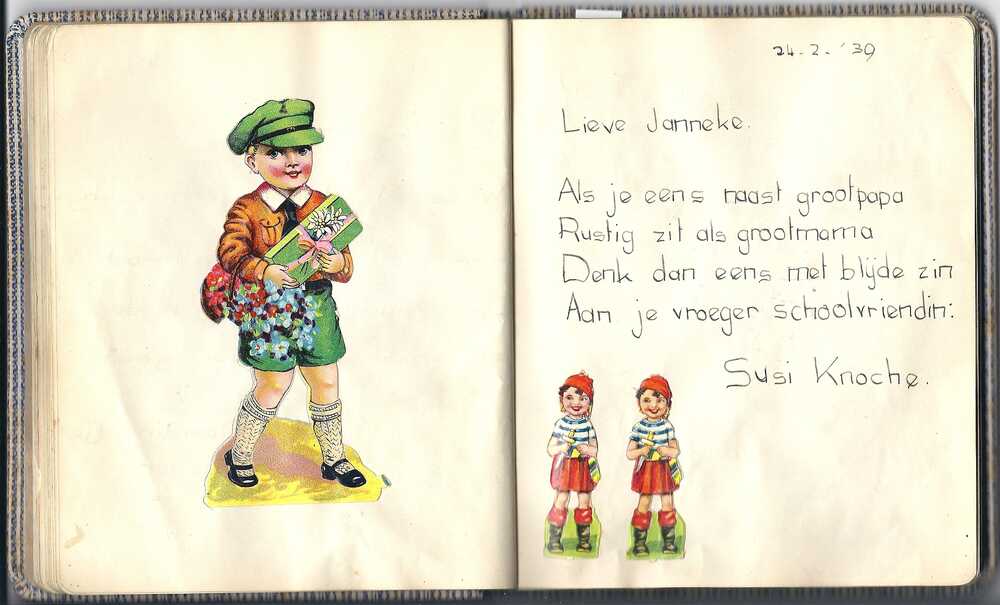 24-2-'39
Lieve Janneke.
Als je eens naast grootpapa
Rustig zit als grootmama
Denk dan eens met blijde zin
Aan je vroeger schoolvriendin:
Susi Knoche.